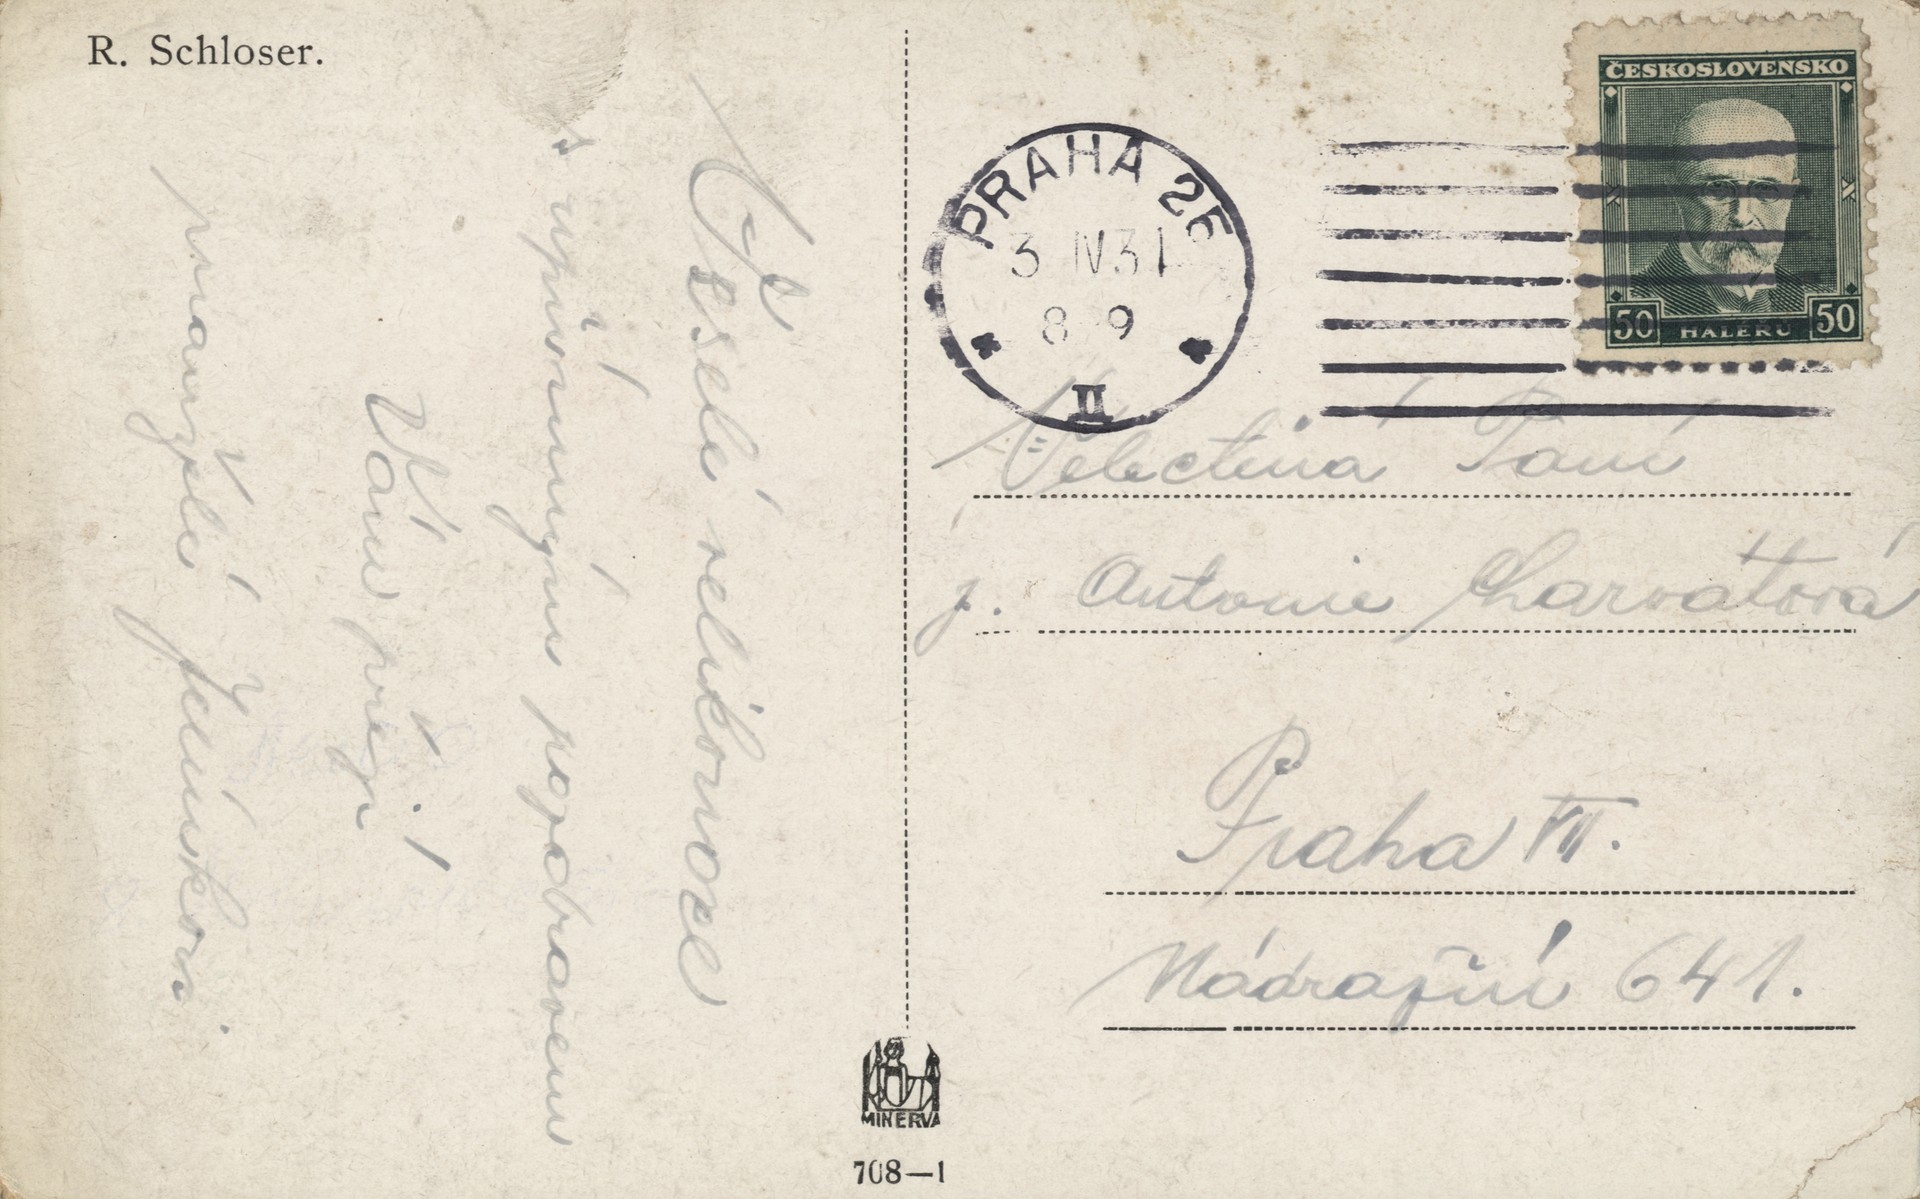 R. Schloser.
Veselé velikonoce
s upřímným pozdravem
Vám přejí
manželé Jelínkovi.
ČESKOSLOVENSKO
50 HALÉŘŮ 50
PRAHA 25
3 IV 31
8 9
II
Velectěná Paní
p. Antonie Charvátová
Praha VII.
Nádražní 641.
MINERVA
708—1